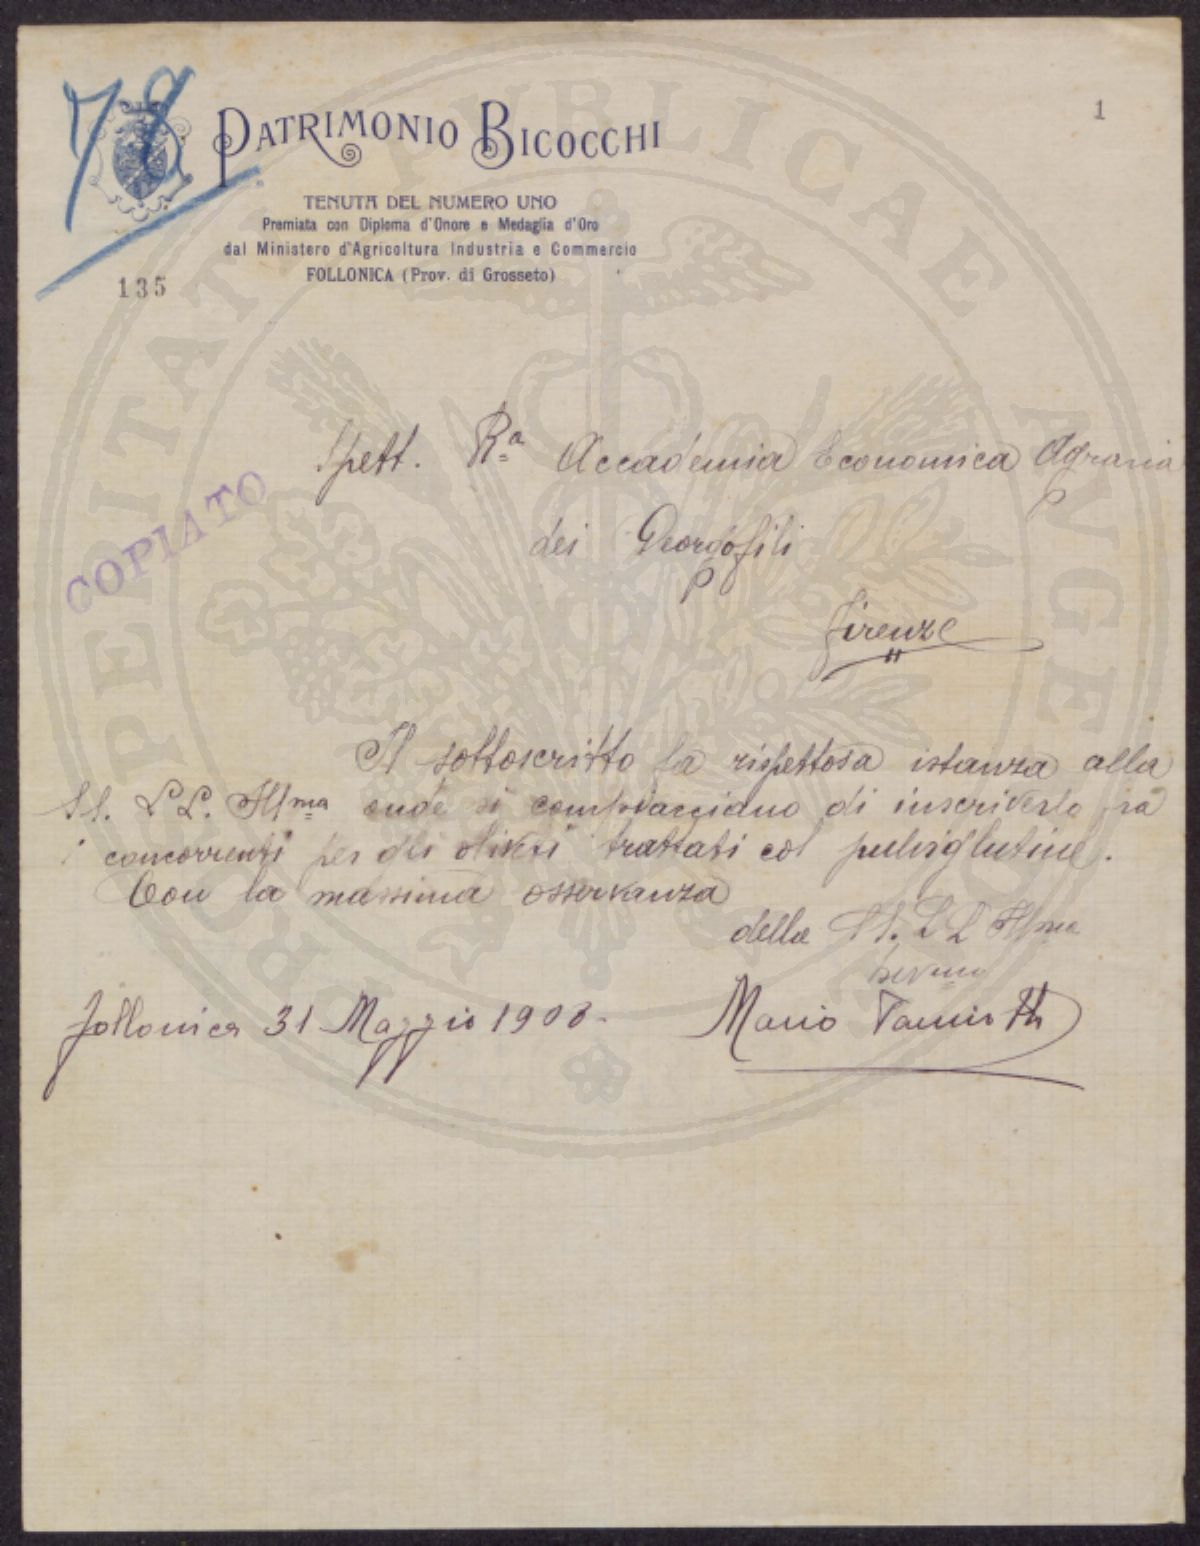 78
1
PATRIMONIO BICOCCHI
TENUTA DEL NUMERO UNO
Premiata con Diploma d'Onore e Medaglia d'Oro
dal Ministero d'Agricoltura Industria e Commercio
FOLLONICA (Prov. di Grosseto)
135
COPIATO
Spett. Rª Accademia Economica Agraria
dei Georgofili
Firenze
Il sottoscritto fa rispettosa istanza alla
SS. LL. Illma onde si compiacciano di inscriverlo fra
i concorrenti per gli oliveti trattati col pulviglutine.
Con la massima osservanza
della SS. LL Illma
Follonica 31 Maggio 1908-
Mario
PROSPERITATI PUBLICAE AUGENDAE